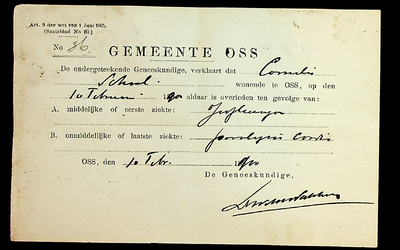 Art. 5 der wet van 1 Juni 1865.
(Staatsblad No 60.)
No 36.
GEMEENTE OSS
De ondergeteekende Geneeskundige, verklaart dat Cornelis
wonende te OSS, op den
10 Februari 1900 aldaar is overleden ten gevolge van:
A. middelijke of eerste ziekte: Influenza
B. onmiddelijke of laatste ziekte: paralysis Cordis
OSS, den 10 Febr. 1900
De Geneeskundige,